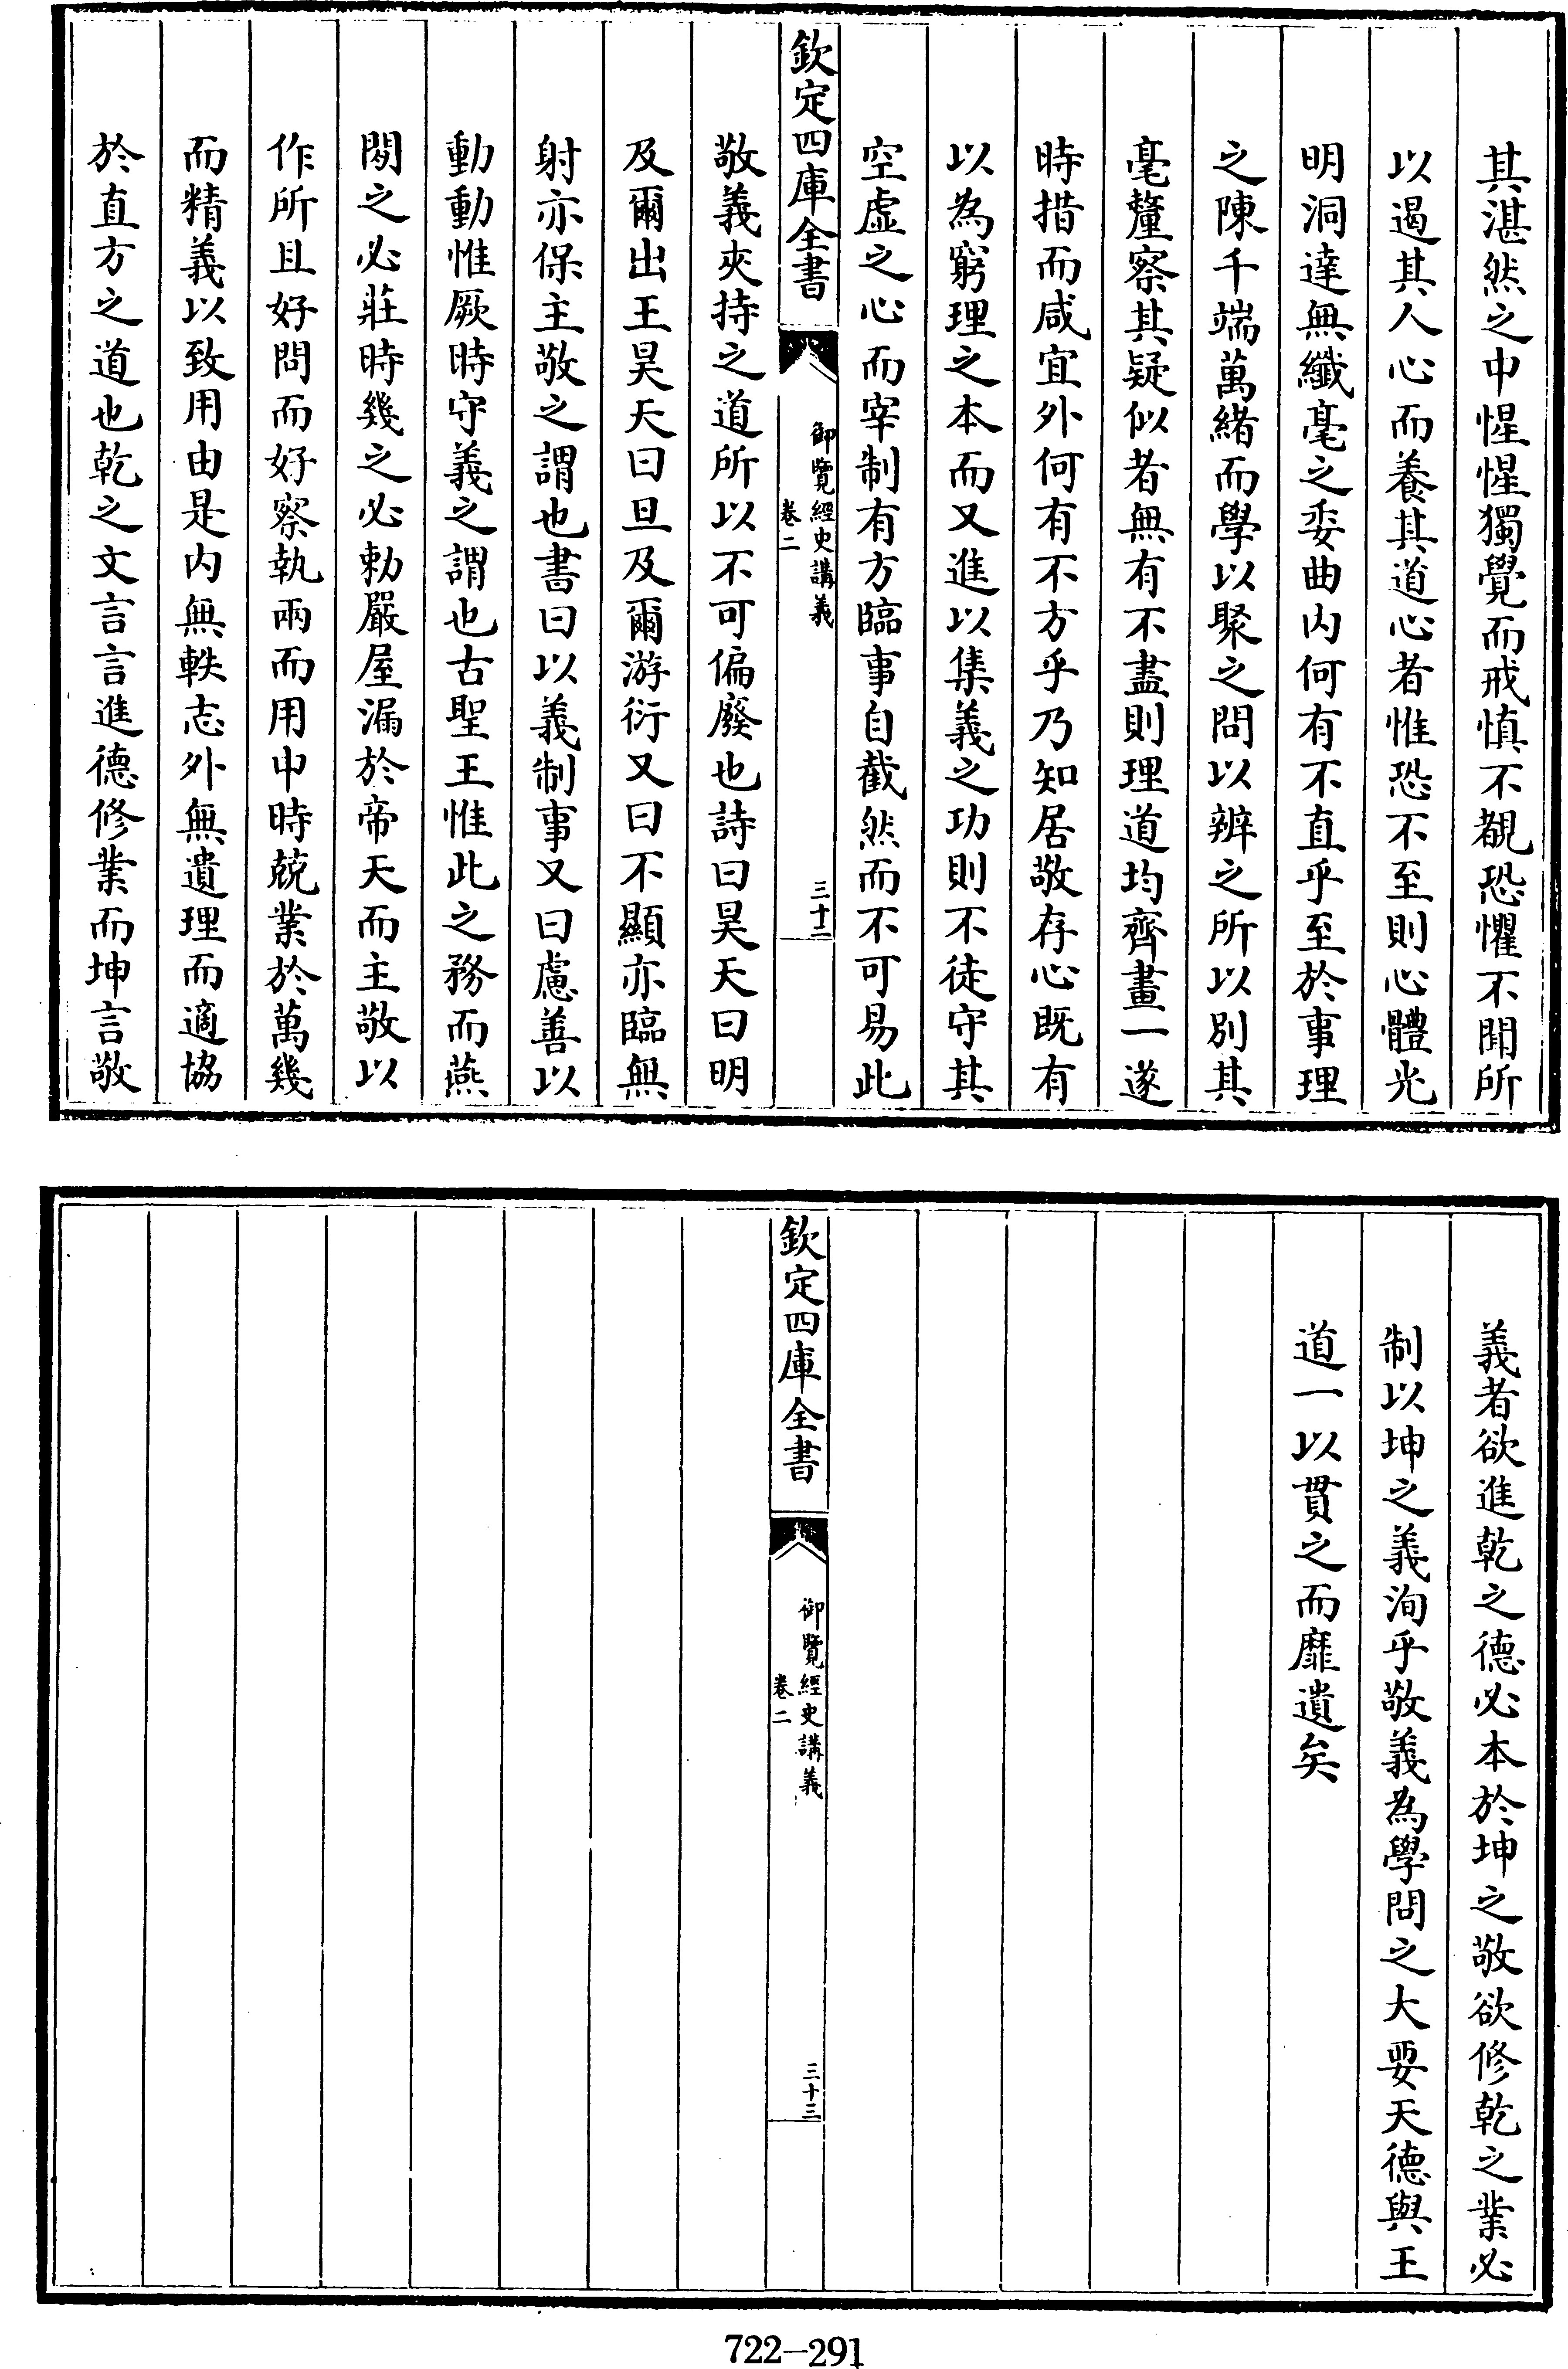 其湛然之中惺惺獨覺而戒慎不覩恐懼不聞所
以遏其人心而養其道心者惟恐不至則心體光
明洞達無纖毫之委曲内何有不直乎至於事理
之陳千端萬緒而學以聚之問以辨之所以別其
毫釐察其疑似者無有不盡則理道均齊畫一遂
時措而咸宜外何有不方乎乃知居敬存心既有
以為窮理之本而又進以集義之功則不徒守其
空虛之心而宰制有方臨事自截然而不可易此
欽定四庫全書
御覽經史講義
卷二
三十二
敬義夾持之道所以不可偏廢也詩曰昊天曰明
及爾出王昊天曰旦及爾游衍又曰不顯亦臨無
射亦保主敬之謂也書曰以義制事又曰慮善以
動動惟厥時守義之謂也古聖王惟此之務而燕
閒之必莊時幾之必勅嚴屋漏於帝天而主敬以
作所且好問而好察執兩而用中時兢業於萬幾
而精義以致用由是内無軼志外無遺理而適協
於直方之道也乾之文言言進德修業而坤言敬
義者欲進乾之德必本於坤之敬欲修乾之業必
制以坤之義洵乎敬義為學問之大要天德與王
道一以貫之而靡遺矣
欽定四庫全書
御覽經史講義
卷二
三十三
722-291